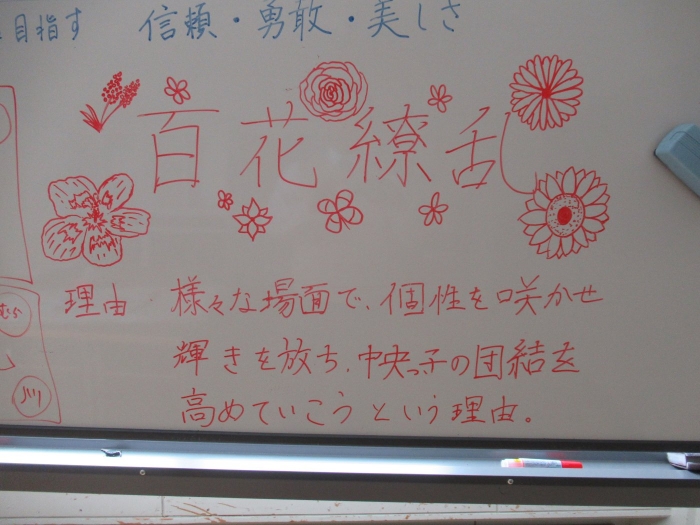 目指す 信頼・勇敢・美しさ
百花繚乱
理由 様々な場面で、個性を咲かせ
輝きを放ち、中央っ子の団結を
高めていこうという理由。